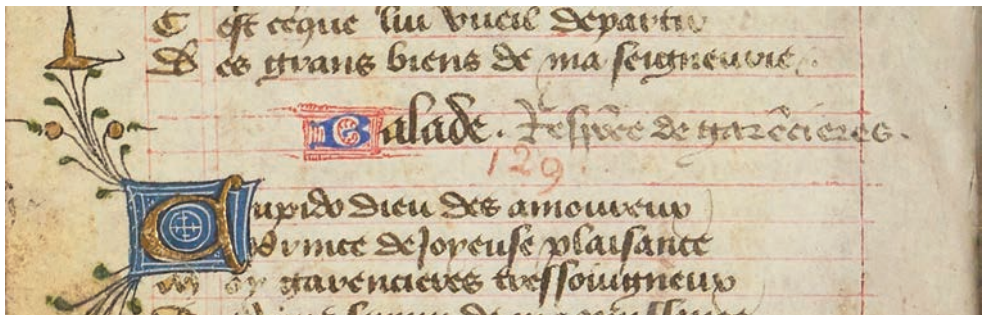 C est ce que lui vueil departir
D es grans biens de ma seigneurie.
Balade. Respōce de garēcieres.
129
Cupido dieu des amoureux
Prince de Joyeuse plaisance
M oy garencieres tressouigneux